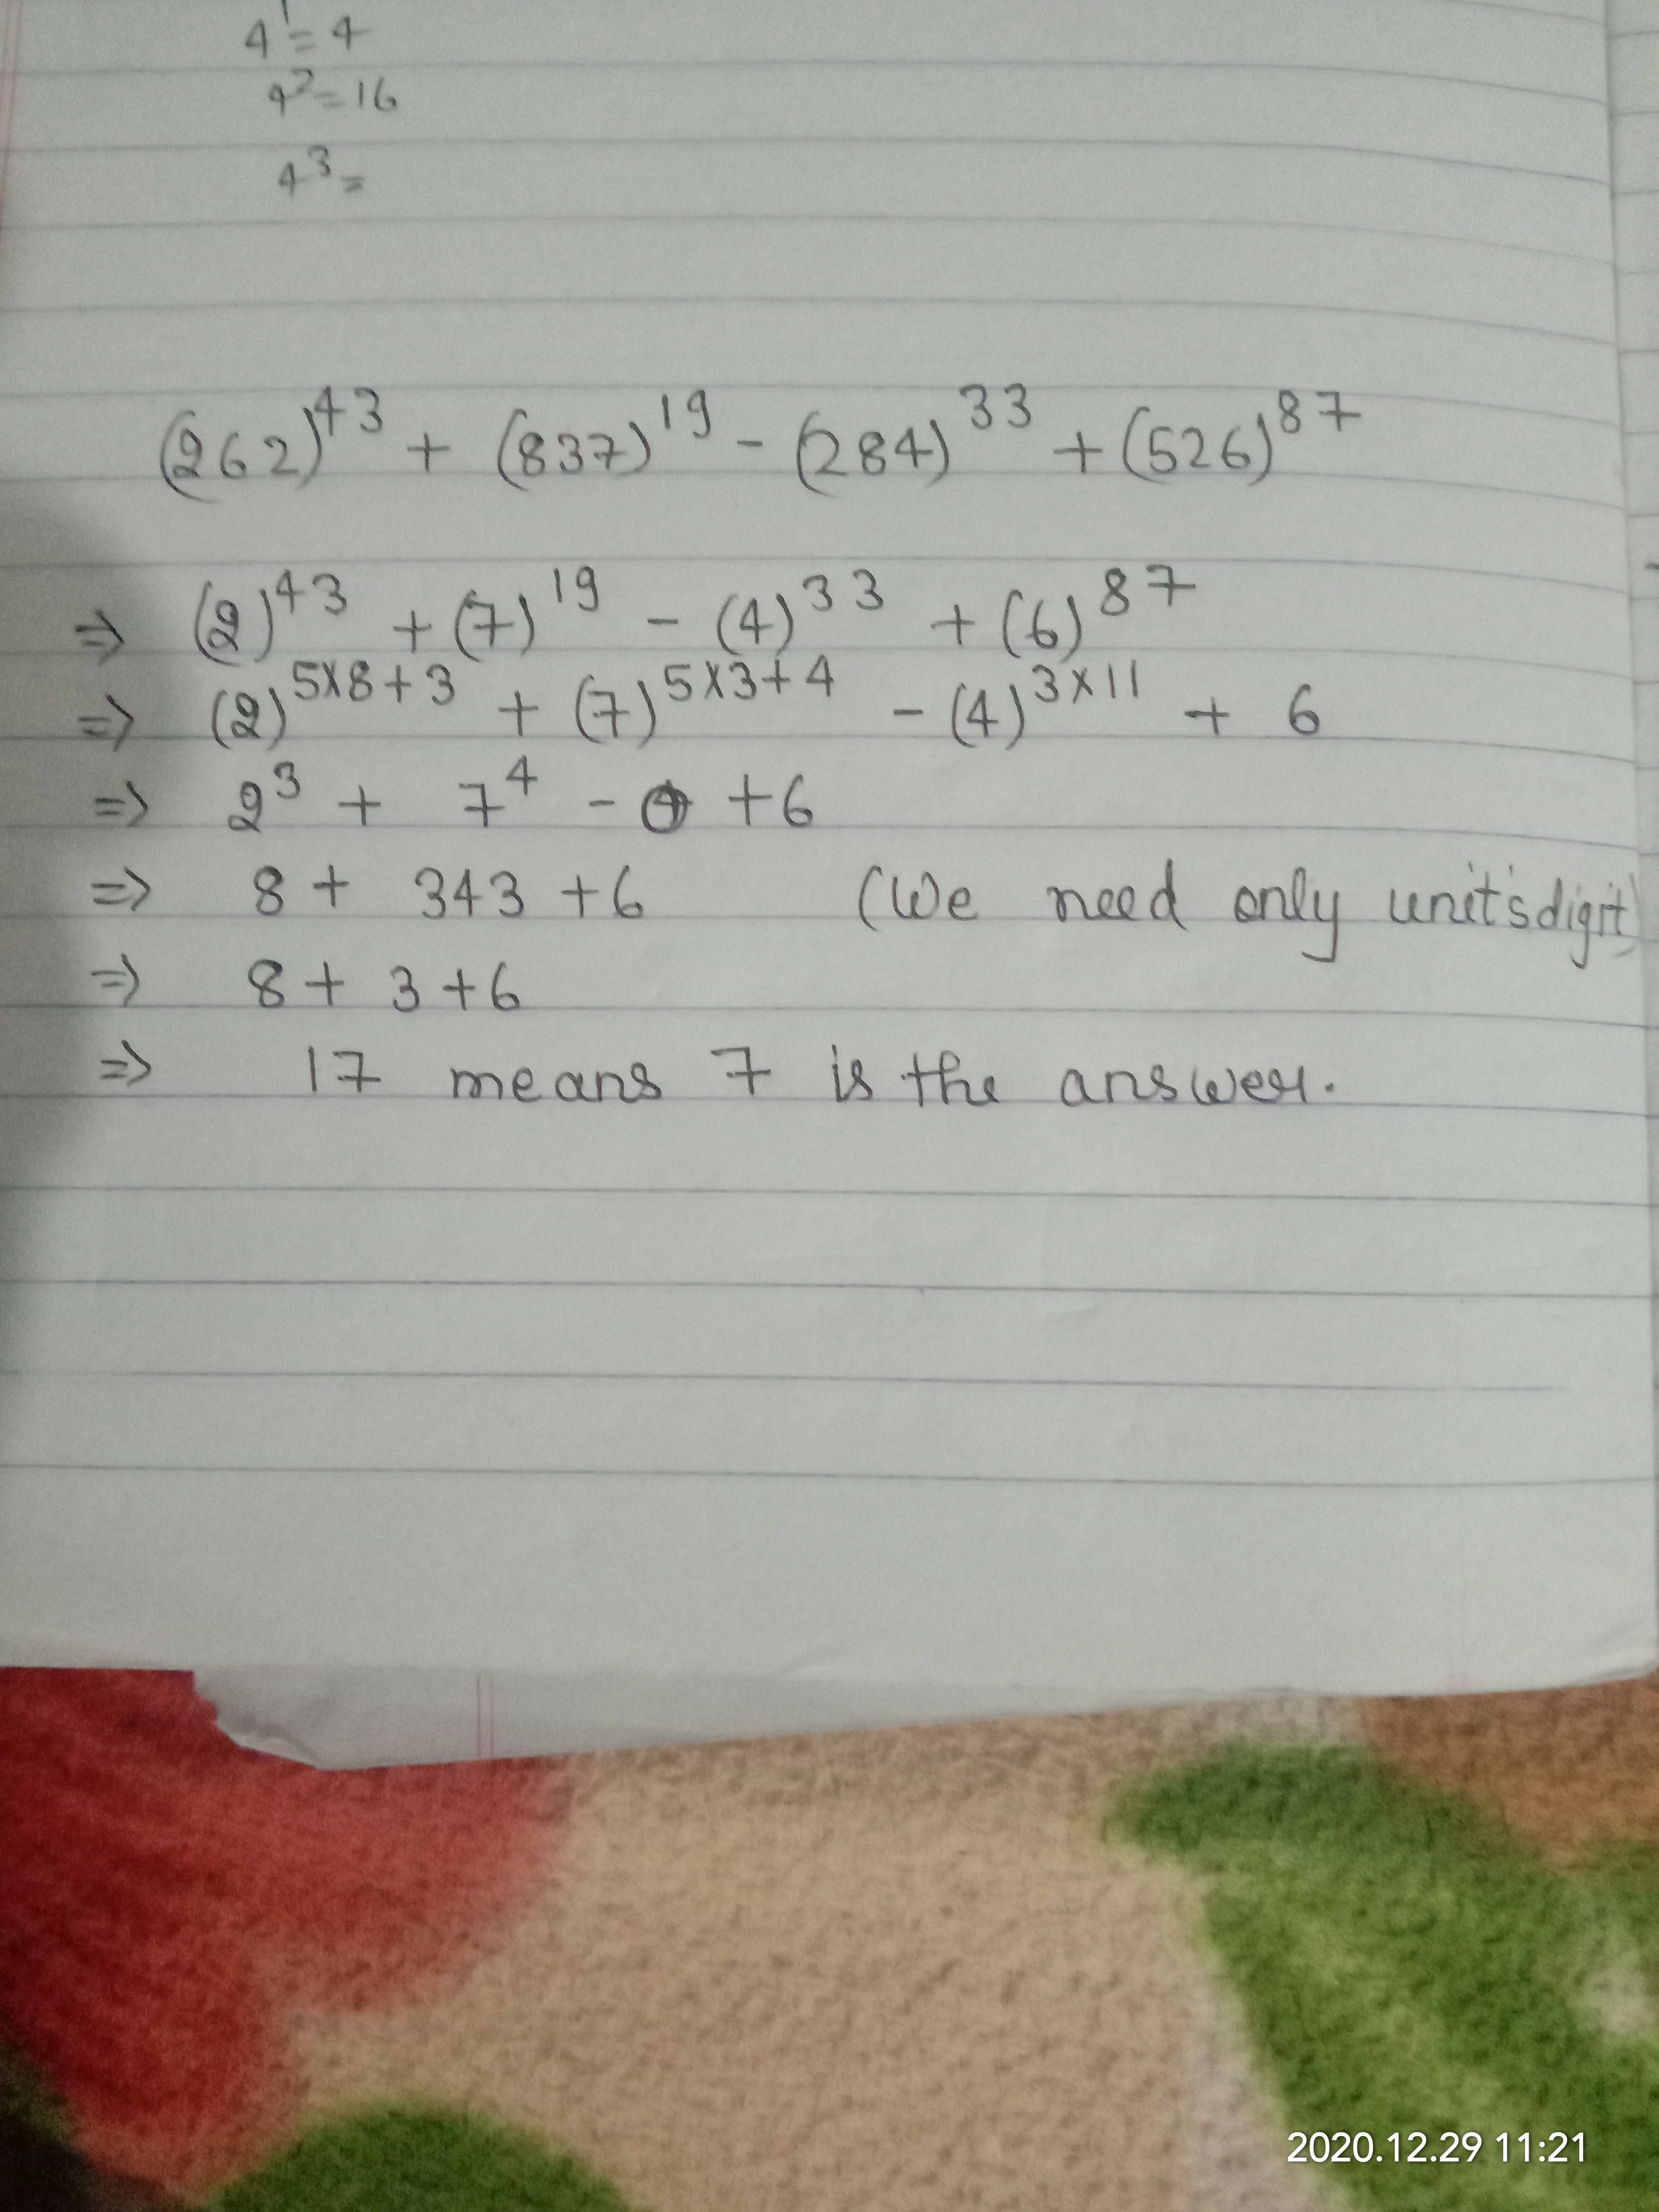 4¹ = 4
4² = 16
4³ =
(262)⁴³ + (837)¹⁹ - (284)³³ + (526)⁸⁷
⇒ (2)⁴³ + (7)¹⁹ - (4)³³ + (6)⁸⁷
⇒ (2)^5×8+3 + (7)^5×3+4 - (4)^3×11 + 6
⇒ 2³ + 7⁴ - + 6
⇒ 8 + 343 + 6 (We need only unit's digit)
⇒ 8 + 3 + 6
⇒ 17 means 7 is the answer.
2020.12.29 11:21